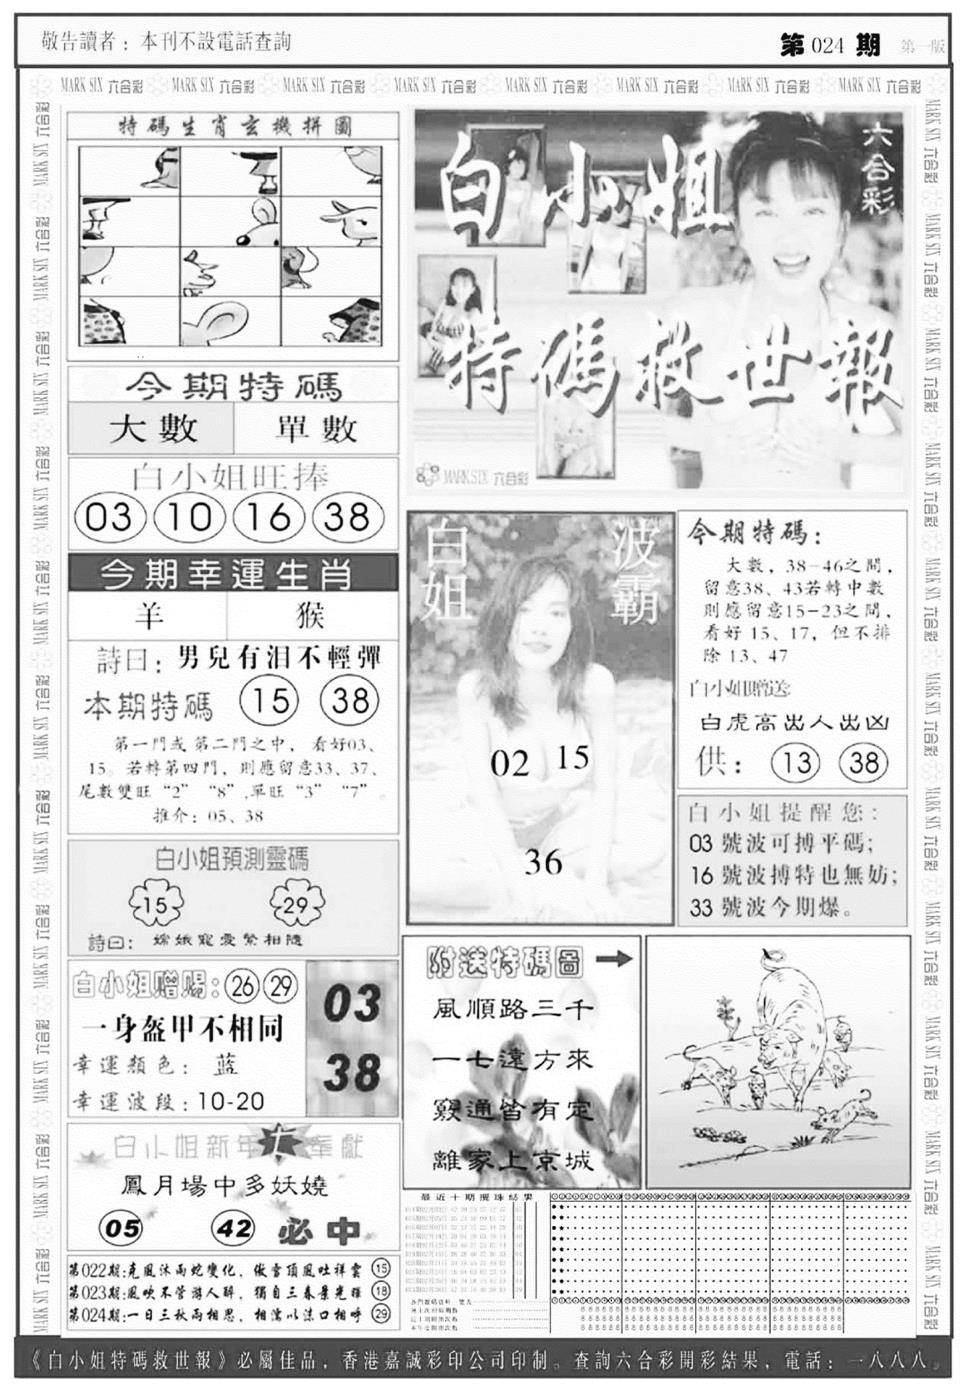 敬告讀者：本刊不設電話查詢
第024期 第一版
MARK SIX 六合彩 MARK SIX 六合彩 MARK SIX 六合彩 MARK SIX 六合彩 MARK SIX 六合彩 MARK SIX 六合彩 MARK SIX 六合彩 MARK SIX 六合彩
特碼生肖玄機拼圖
六合彩
白小姐
特碼救世報
MARK SIX 六合彩
今期特碼
大數 單數
白小姐旺捧
03 10 16 38
今期幸運生肖
羊 猴
詩曰：男兒有泪不輕彈
本期特碼 15 38
第一門或第二門之中，看好03、
15。若轉第四門，則應留意33、37、
尾數雙旺“2”“8”,單旺“3”“7”。
推介：05、38
白小姐預測靈碼
15 29
詩曰：嫦娥寵愛緊相隨
白小姐贈賜：26 29
一身盔甲不相同
幸運顏色：蓝
幸運波段：10-20
03
38
白小姐新年 奉獻
鳳月場中多妖嬈
05 42 必中
白姐 波霸
02 15
36
今期特碼：
大數，38-46之間，
留意38、43若轉中數
則應留意15-23之間，
看好15、17，但不排
除13、47
白小姐贈送:
白虎高出人出凶
供：13 38
白小姐提醒您：
03號波可搏平碼；
16號波搏特也無妨；
33號波今期爆。
附送特碼圖
風順路三千
一七遠方來
竅通皆有定
離家上京城
最近十期攪珠結果
第022期:克風沐雨蛇變化，傲雪頂風吐祥雲 15
第023期:風吹不管游人醉，獨自三春景光輝 18
第024期:一日三秋兩相思，相濡以沫口相呼 29
《白小姐特碼救世報》必屬佳品，香港嘉誠彩印公司印制。查詢六合彩開彩結果，電話：一八八八。